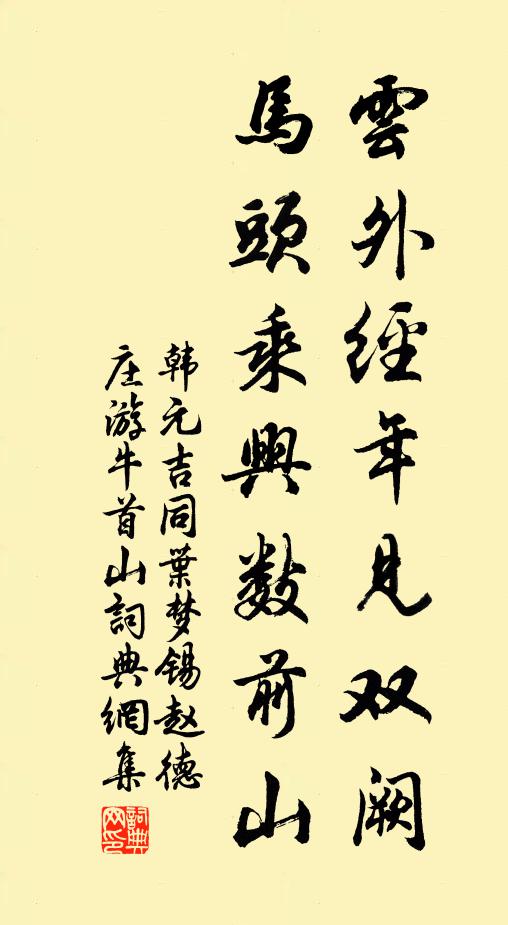 雲外經年見双阙
馬頭乘興數前山
韩元吉同葉梦锡赵德
庄游牛首山詞典網集
詞典网印